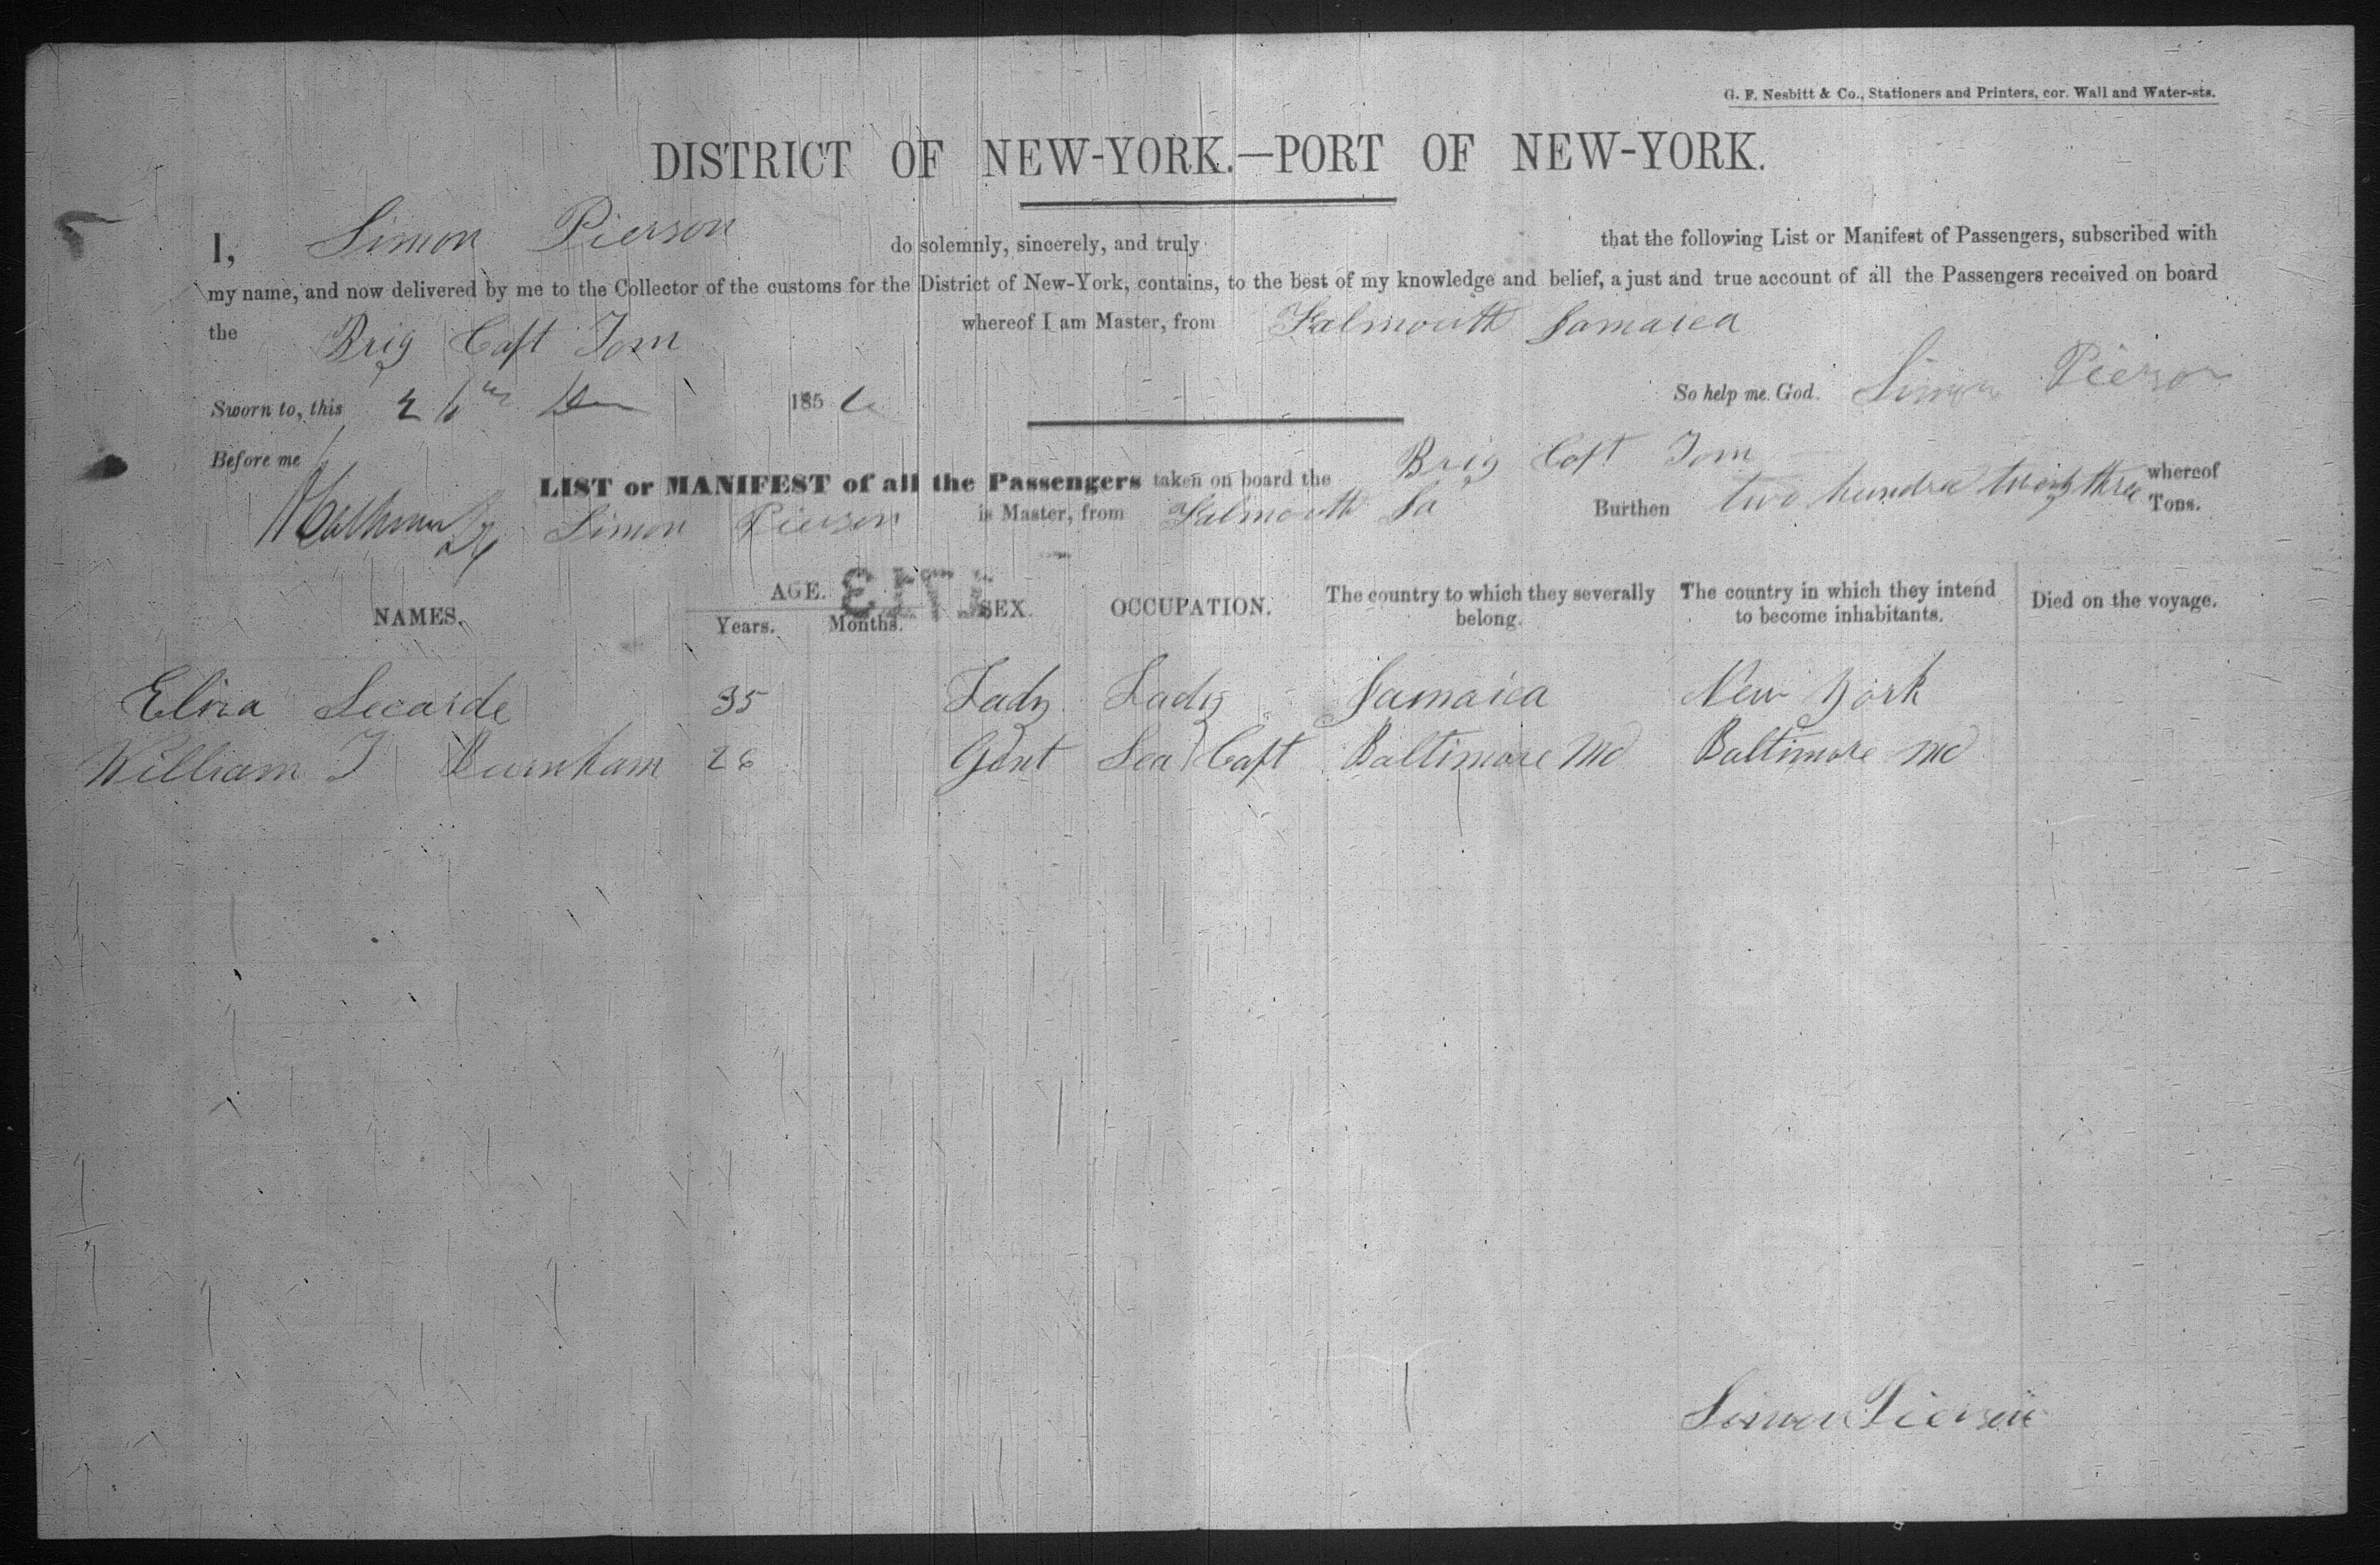 G. F. Nesbitt & Co., Stationers and Printers, cor. Wall and Water-sts.
DISTRICT OF NEW-YORK.—PORT OF NEW-YORK.
I, Simon Pierson do solemnly, sincerely, and truly that the following List or Manifest of Passengers, subscribed with
my name, and now delivered by me to the Collector of the customs for the District of New-York, contains, to the best of my knowledge and belief, a just and true account of all the Passengers received on board
the Brig Capt Tom whereof I am Master, from Falmouth Jamaica
Sworn to, this 26 185 6 So help me God. Simon Pierson
Before me
LIST or MANIFEST of all the Passengers taken on board the Brig Capt Tom whereof
Simon Pierson is Master, from Falmouth Ja Burthen two hundred twenty three Tons.
NAMES. AGE. Years. Months. SEX. OCCUPATION. The country to which they severally belong. The country in which they intend to become inhabitants. Died on the voyage.
Eliza 35 Lady Lady Jamaica New York
William T Burnham 26 Gent Sea Capt Baltimore Md Baltimore Md
Simon Pierson